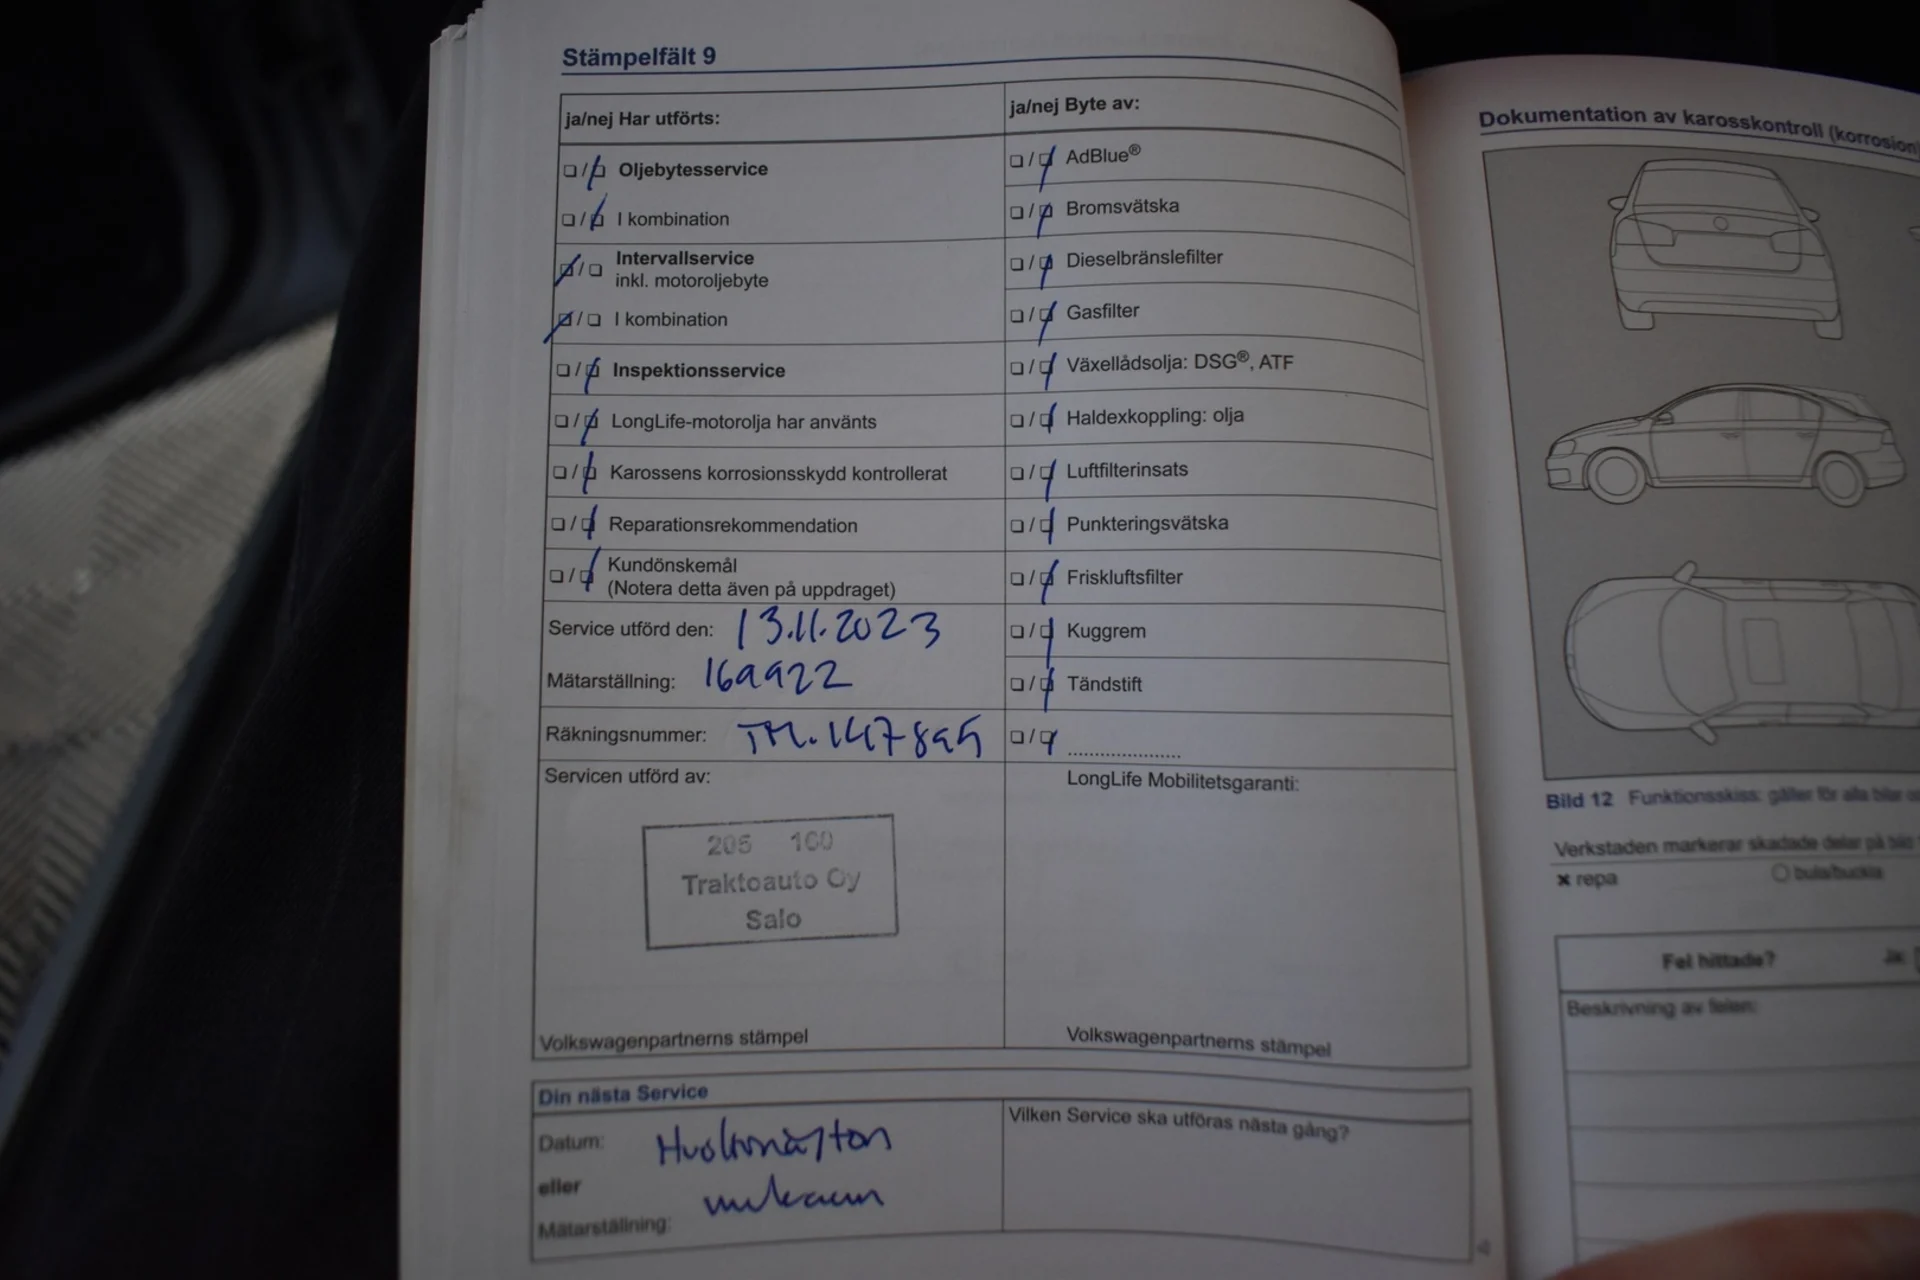 Stämpelfält 9
ja/nej Har utförts:
❏ / ❏ Oljebytesservice
❏ / ❏ I kombination
❏ / ❏ Intervallservice
inkl. motoroljebyte
❏ / ❏ I kombination
❏ / ❏ Inspektionsservice
❏ / ❏ LongLife-motorolja har använts
❏ / ❏ Karossens korrosionsskydd kontrollerat
❏ / ❏ Reparationsrekommendation
❏ / ❏ Kundönskemål
(Notera detta även på uppdraget)
Service utförd den: 13.11.2023
Mätarställning: 169922
Räkningsnummer:
Servicen utförd av:
205 160
Traktoauto Oy
Salo
Volkswagenpartnerns stämpel
ja/nej Byte av:
❏ / ❏ AdBlue®
❏ / ❏ Bromsvätska
❏ / ❏ Dieselbränslefilter
❏ / ❏ Gasfilter
❏ / ❏ Växellådsolja: DSG®, ATF
❏ / ❏ Haldexkoppling: olja
❏ / ❏ Luftfilterinsats
❏ / ❏ Punkteringsvätska
❏ / ❏ Friskluftsfilter
❏ / ❏ Kuggrem
❏ / ❏ Tändstift
❏ / ❏ ....................
LongLife Mobilitetsgaranti:
Volkswagenpartnerns stämpel
Din nästa Service
Datum: Huoltonäytön
eller mukaan
Mätarställning:
Vilken Service ska utföras nästa gång?
Dokumentation av karosskontroll (korrosion)
Bild 12 Funktionsskiss: gäller för alla bilar
Verkstaden markerar skadade delar på bild
× repa
○ bula/buckla
Fel hittade? Ja:
Beskrivning av felen: